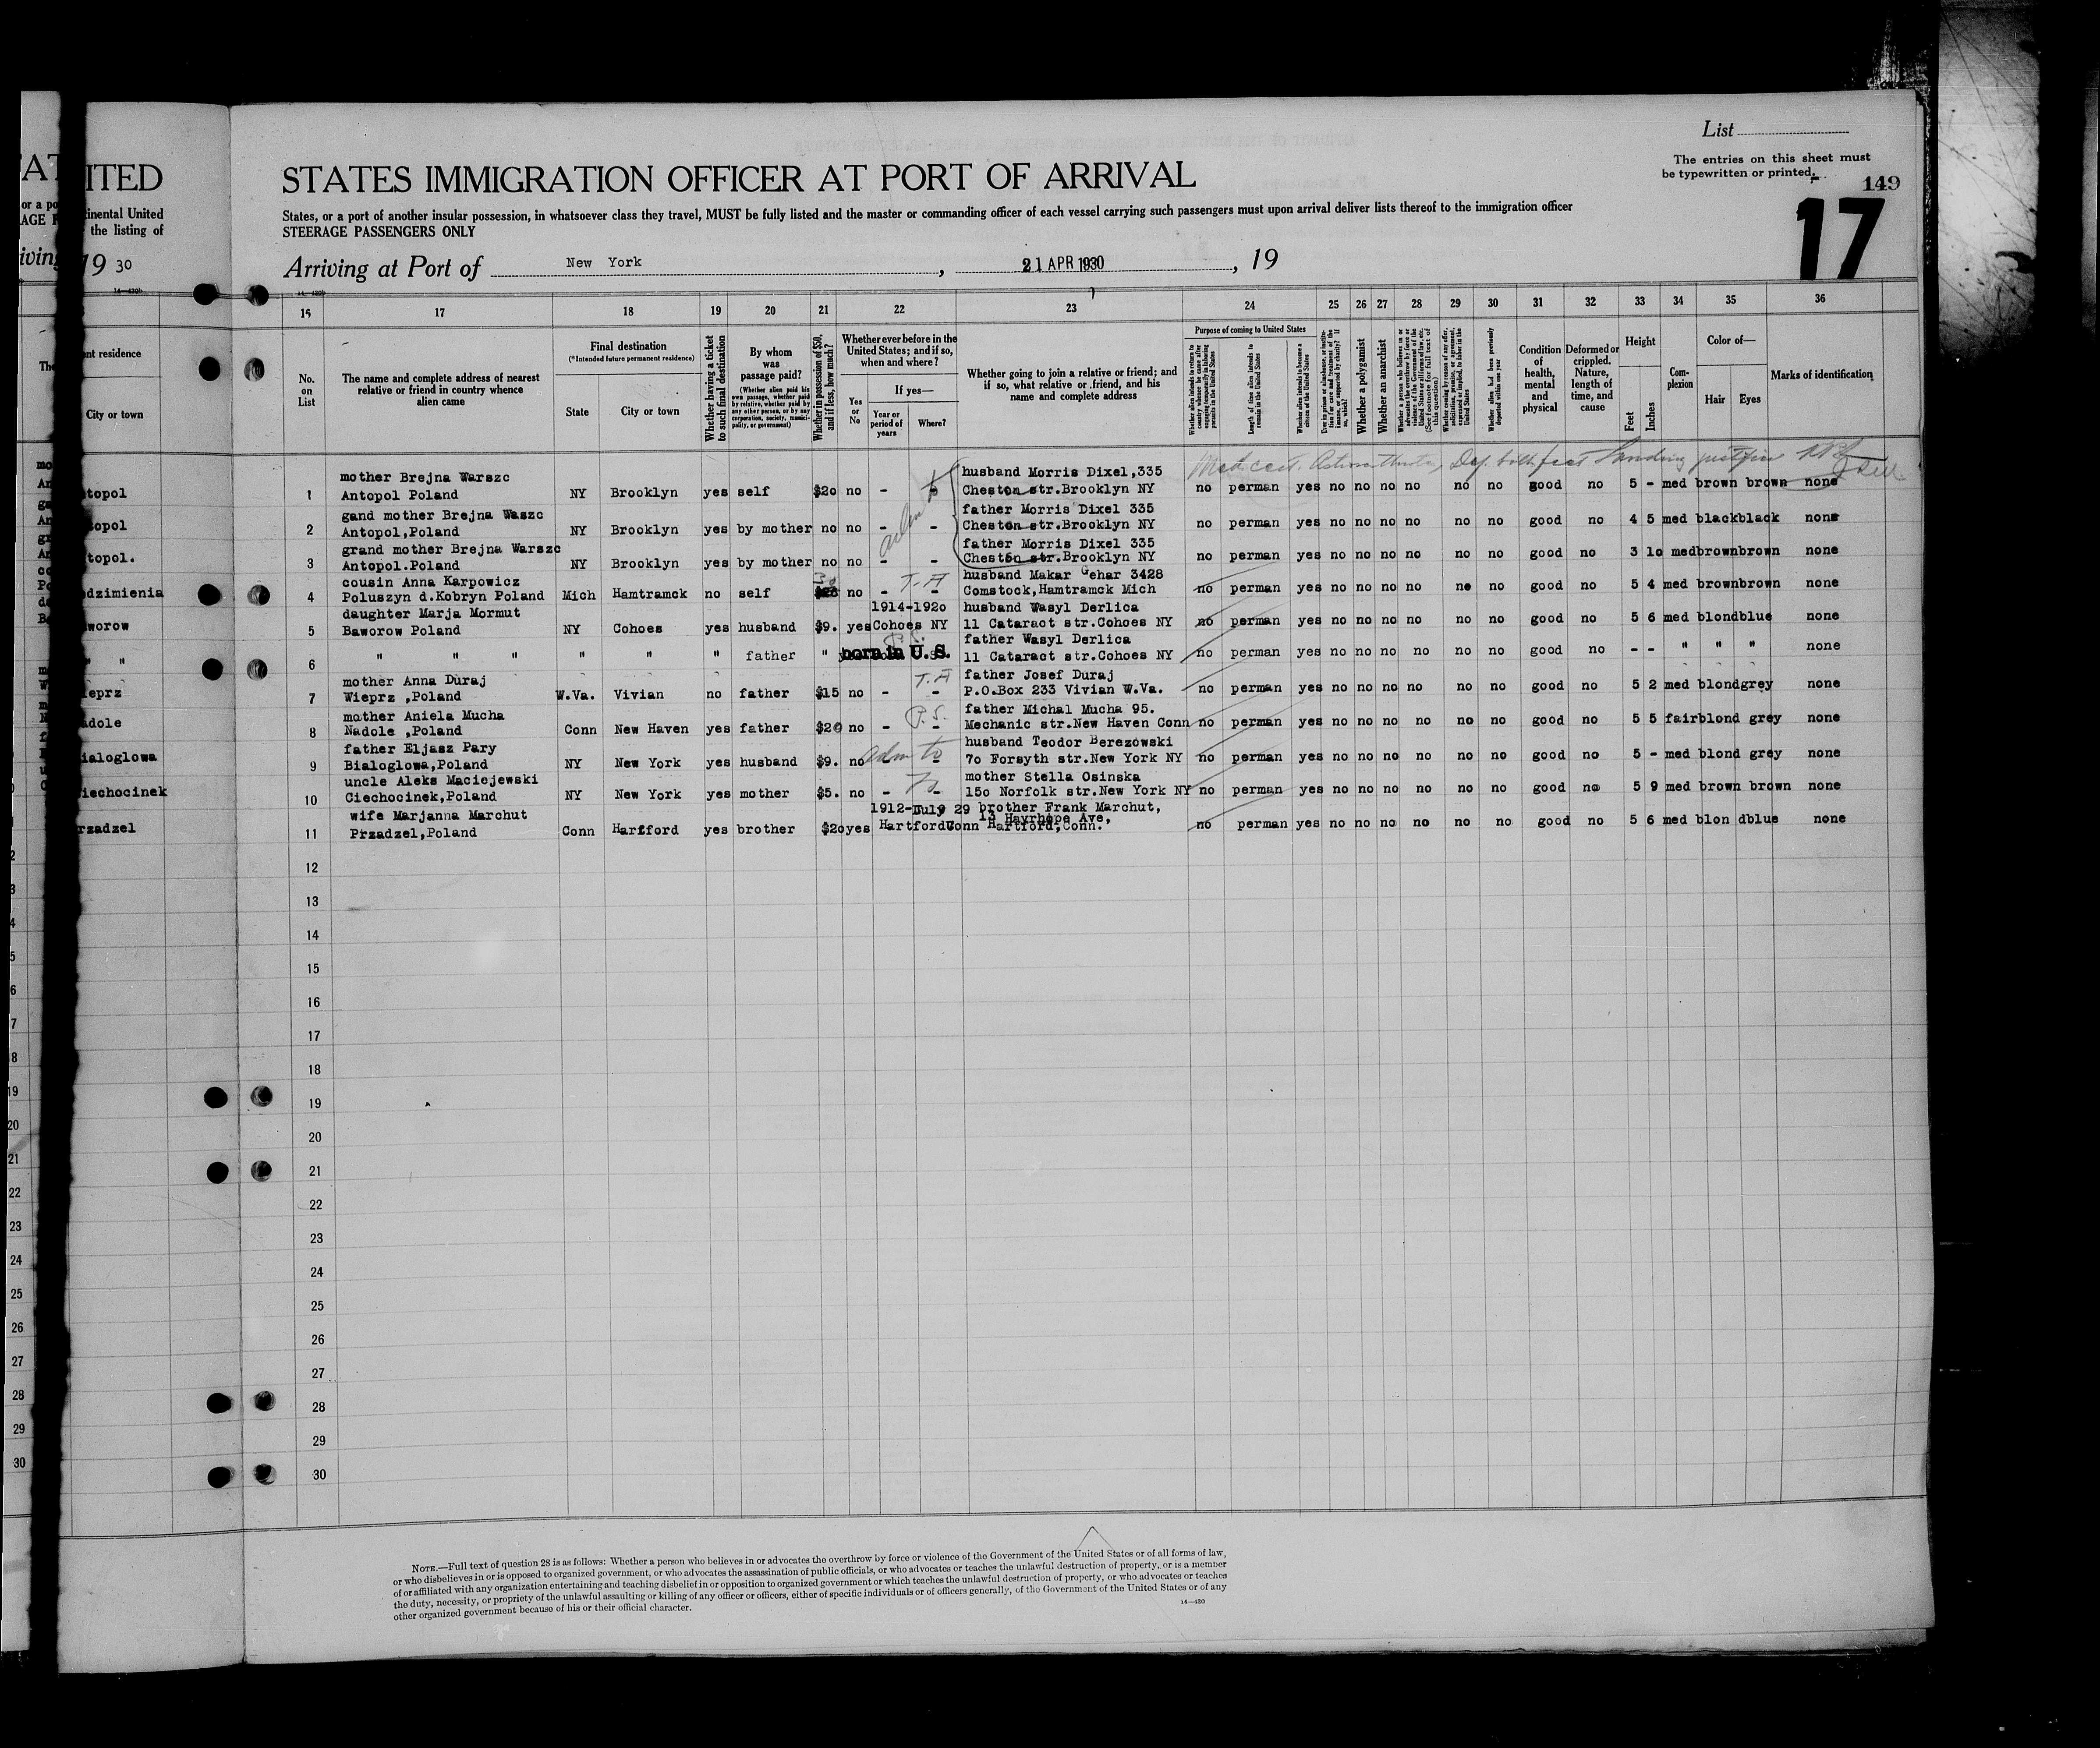 List
The entries on this sheet must
be typewritten or printed.
149
17
ITED
STATES IMMIGRATION OFFICER AT PORT OF ARRIVAL
inental United
the listing of
States, or a port of another insular possession, in whatsoever class they travel, MUST be fully listed and the master or commanding officer of each vessel carrying such passengers must upon arrival deliver lists thereof to the immigration officer
STEERAGE PASSENGERS ONLY
19 30
Arriving at Port of New York , 21 APR 1930 , 19
17 18 19 20 21 22 23 24 25 26 27 28 29 30 31 32 33 34 35 36
nt residence
City or town
No. on List
The name and complete address of nearest relative or friend in country whence alien came
Final destination
(*Intended future permanent residence)
State
City or town
Whether having a ticket to such final destination
By whom was passage paid?
(Whether alien paid his own passage, whether paid by relative, whether paid by any other person, or by any corporation, society, municipality, or government)
Whether in possession of $50, and if less, how much?
Whether ever before in the United States; and if so, when and where?
Yes or No
If yes—
Year or period of years
Where?
Whether going to join a relative or friend; and if so, what relative or friend, and his name and complete address
Purpose of coming to United States
Whether alien intends to return to country whence he came after engaging temporarily in laboring pursuits in the United States
Length of time alien intends to remain in the United States
Whether alien intends to become a citizen of the United States
Whether a polygamist
Whether an anarchist
Whether alien had been previously deported within one year
Condition of health, mental and physical
Deformed or crippled. Nature, length of time, and cause
Height
Feet
Inches
Complexion
Color of—
Hair
Eyes
Marks of identification
topol
mother Brejna Warszc husband Morris Dixel,335
1 Antopol Poland NY Brooklyn yes self $20 no - Cheston str.Brooklyn NY no perman yes no no no no no no good no 5 - med brown brown none
opol
gand mother Brejna Waszc father Morris Dixel 335
2 Antopol,Poland NY Brooklyn yes by mother no no - - Cheston str.Brooklyn NY no perman yes no no no no no no good no 4 5 med blackblack none
topol.
grand mother Brejna Warszc father Morris Dixel 335
3 Antopol.Poland NY Brooklyn yes by mother no no - - Cheston str.Brooklyn NY no perman yes no no no no no no good no 3 10 medbrownbrown none
dzimienia
cousin Anna Karpowicz 30 T.A husband Makar Gehar 3428
4 Poluszyn d.Kobryn Poland Mich Hamtramck no self no - - Comstock,Hamtramck Mich no perman yes no no no no no no good no 5 4 med brownbrown none
worow
daughter Marja Mormut 1914-1920 husband Wasyl Derlica
5 Baworow Poland NY Cohoes yes husband $9. yes Cohoes NY 11 Cataract str.Cohoes NY no perman yes no no no no no no good no 5 6 med blondblue none
" "
father Wasyl Derlica
6 " " " " " " father " born in U.S. 11 Cataract str.Cohoes NY no perman yes no no no no no no good no - - " " " none
ieprz
mother Anna Duraj T.A father Josef Duraj
7 Wieprz ,Poland W.Va. Vivian no father $15 no - - P.O.Box 233 Vivian W.Va. no perman yes no no no no no no good no 5 2 med blondgrey none
adole
mother Aniela Mucha P.S. father Michal Mucha 95.
8 Nadole ,Poland Conn New Haven yes father $20 no - - Mechanic str.New Haven Conn no perman yes no no no no no no good no 5 5 fairblond grey none
ialoglowa
father Eljasz Pary husband Teodor Berezowski
9 Bialoglowa,Poland NY New York yes husband $9. no - 70 Forsyth str.New York NY no perman yes no no no no no no good no 5 - med blond grey none
iechocinek
uncle Aleks Maciejewski mother Stella Osinska
10 Ciechocinek,Poland NY New York yes mother $5. no - - 150 Norfolk str.New York NY no perman yes no no no no no no good no 5 9 med brown brown none
rzadzel
wife Marjanna Marchut 1912-July 29 brother Frank Marchut,
13 Hayrhope Ave,
11 Przadzel,Poland Conn Hartford yes brother $20 yes Hartford Conn Hartford,Conn. no perman yes no no no no no no good no 5 6 med blon dblue none
12
13
14
15
16
17
18
19
20
21
22
23
24
25
26
27
28
29
30
NOTE.—Full text of question 28 is as follows: Whether a person who believes in or advocates the overthrow by force or violence of the Government of the United States or of all forms of law,
or who disbelieves in or is opposed to organized government, or who advocates the assassination of public officials, or who advocates or teaches the unlawful destruction of property, or is a member
of or affiliated with any organization entertaining and teaching disbelief in or opposition to organized government or which teaches the unlawful destruction of property, or who advocates or teaches
the duty, necessity, or propriety of the unlawful assaulting or killing of any officer or officers, either of specific individuals or of officers generally, of the Government of the United States or of any
other organized government because of his or their official character.
14—430